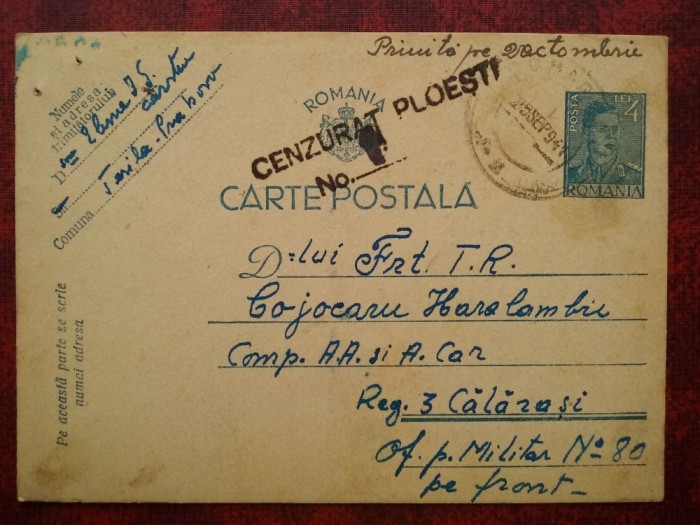 Primită pe 2 octombrie
ROMANIA
CENZURAT PLOEȘTI
No.
28SEP941
POSTA LEI 4
ROMANIA
CARTE POSTALĂ
Numele
și adresa
trimițătorului
D
Elena I.
Comuna
Pe această parte se scrie
numai adresa
D=lui Frt. T.R.
Cojocaru Haralambie
Comp. A.A. si A. Car
Reg. 3 Călărași
Of. p. Militar No 80
pe front